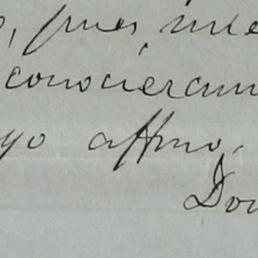 , pues
conocieran
yo affmo.
Do